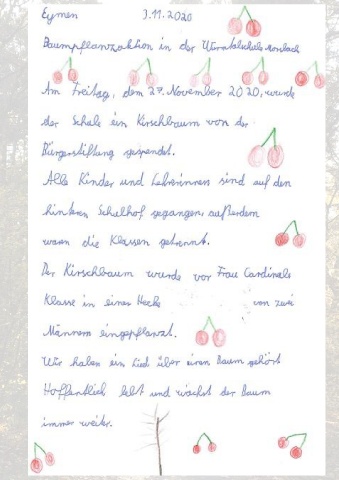 Eymen 3.11.2020
Baumpflanzaktion in der Würmtalschule Merklach
Am Freitag, dem 27. November 2020, wurde
der Schule ein Kirschbaum von der
Bürgerstiftung gespendet.
Alle Kinder und Lehrerinnen sind auf den
hinteren Schulhof gegangen, außerdem
waren die Klassen getrennt.
Der Kirschbaum wurde vor Frau Cardinale
Klasse in einer Hecke von zwei
Männern eingepflanzt.
Wir haben ein Lied über einen Baum gehört
Hoffentlich lebt und wächst der Baum
immer weiter.